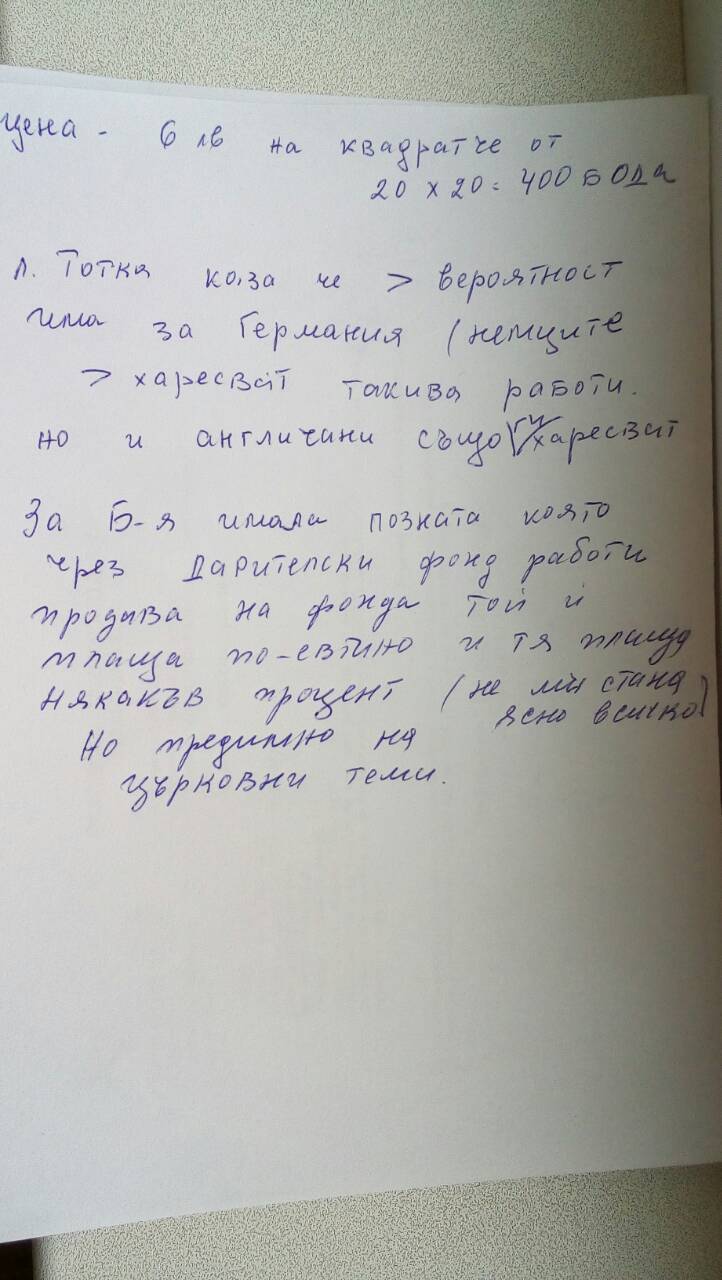 цена - 6 лв на квадратче от
20 x 20 = 400 БОДА
л. Тотка каза че > вероятност
има за Германия (немците
> харесват такива работи.
но и англичани също ги харесват
За Б-я имала позната която
чрез Дарителски фонд работи
продава на фонда той и
плаща по-евтино и тя плаща
някакъв процент (не ми стана
ясно всичко)
Но предимно на
църковни теми.